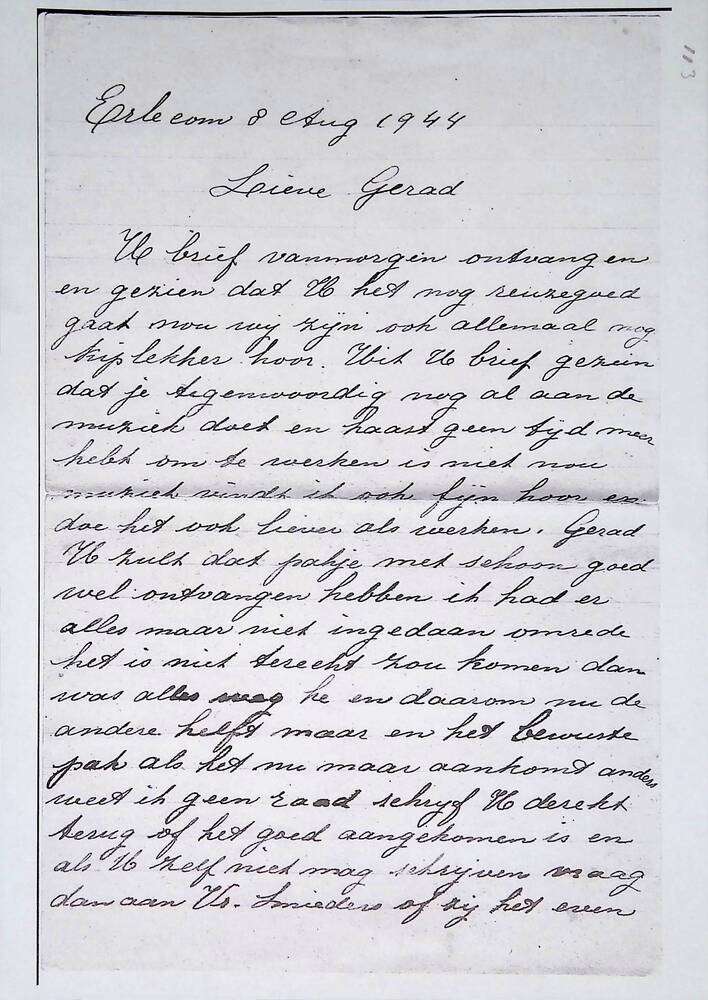 113
Erlecom 8 Aug 1944
Lieve Gerad
U brief vanmorgen ontvangen
en gezien dat U het nog reuzegoed
gaat nou wij zijn ook allemaal nog
kiplekker hoor. Uit U brief gezien
dat je tegenwoordig nog al aan de
muziek doet en haast geen tijd meer
hebt om te werken is niet nou
muziek vindt ik ook fijn hoor en
doe het ook liever als werken. Gerad
U zult dat pakje met schoon goed
wel ontvangen hebben ik had er
alles maar niet ingedaan omrede
het is niet terecht zou komen dan
was alles weg he en daarom nu de
andere helft maar en het bewuste
pak als het nu maar aankomt anders
weet ik geen raad schrijf U derekt
terug of het goed aangekomen is en
als U zelf niet mag schrijven vraag
dan aan Vr. Smieders of zij het even